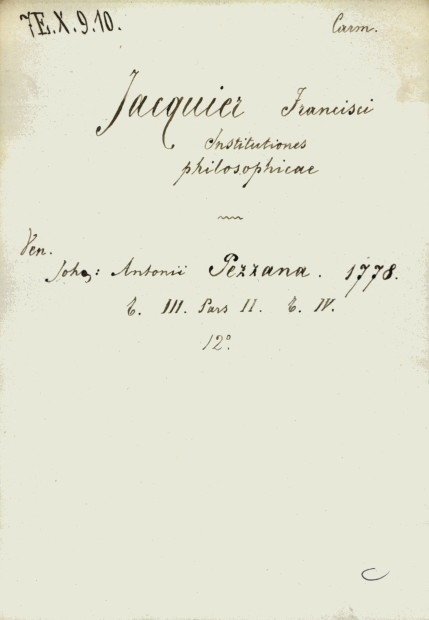 7E.X.9.10.
Carm.
Jacquier Francisci
Institutiones
philosophicae
Ven.
Joh: Antonii Pezzana. 1778.
t. III. Pars II. t. IV.
12°